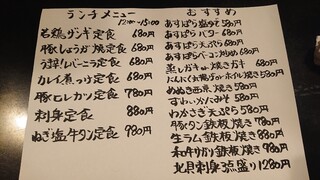 ランチメニュー
12:00〜15:00
若鶏ザンギ定食 680円
豚しょうが焼定食 680円
定食 680円
カレイ煮つけ定食 680円
豚ロレカツ定食 780円
刺身定食 880円
ねぎ塩牛タン定食 980円
むすすめ
あすぱら塩ゆで 580円
あすぱらバター 680円
あすぱら天ぷら 680円
あすぱらベーコン炒め 680円
蒸しガキ・焼ガキ 680円
にんにく ホイル焼き 580円
めぬき西京焼き 780円
ずわいかにみそ 580円
わかさぎ天ぷら 580円
豚タン鉄板焼き 780円
生ラム鉄板焼き 880円
和牛 鉄板焼き 980円
北貝刺身3点盛り 1280円